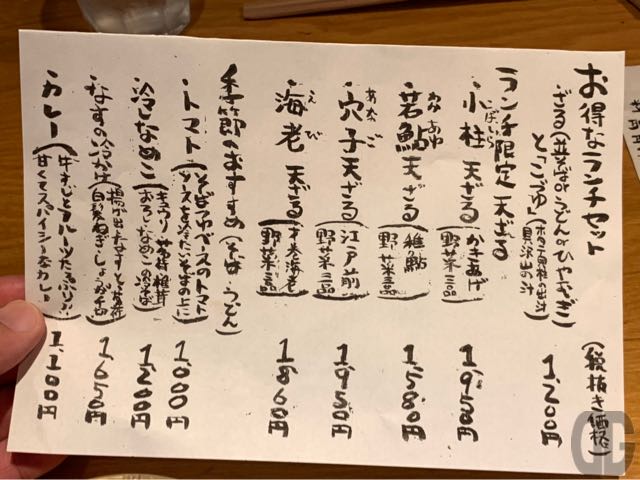 お得なランチセット (税抜き価格)
ざる(並そばorうどんorひやむぎ)
と「こづゆ」(ホタテ貝柱の出汁 具沢山の汁) 1,200円
ランチ限定 天ざる
・小柱 天ざる (かきあげ 野菜三品) 1,950円
こばしら
・若鮎 天ざる (稚鮎 野菜三品) 1,580円
わかあゆ
・穴子 天ざる (江戸前 野菜三品) 1,950円
あなご
・海老 天ざる 野菜三品 1,860円
えび
季節のおすすめ (そば・うどん)
・トマト (そばつゆベースのトマトソースを冷たいそばの上に) 1,000円
・冷しなめこ (キュウリ 茗荷 椎茸 おろし なめこの冷そば) 1,200円
・なすの冷かけ (揚げ出しなす 白髪ねぎ・しょうが) 1,650円
・カレー (牛すじとフルーツたっぷり!! 甘くてスパイシーなカレー) 1,100円
GG